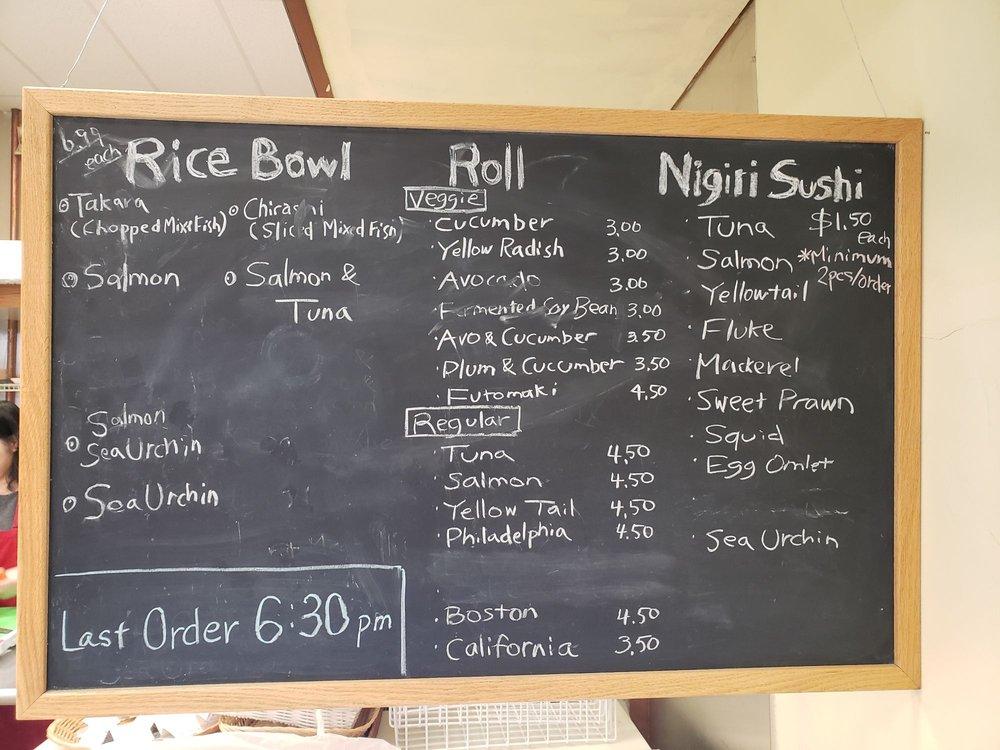 6.99
each
Rice Bowl
Takara
(Chopped Mixed Fish)
Chirashi
(Sliced Mixed Fish)
Salmon
Salmon &
Tuna
Salmon
Sea Urchin
Sea Urchin
Last Order 6:30 pm
Roll
Veggie
Cucumber 3.00
Yellow Radish 3.00
Avocado 3.00
Fermented Soy Bean 3.00
Avo & Cucumber 3.50
Plum & Cucumber 3.50
Futomaki 4.50
Regular
Tuna 4.50
Salmon 4.50
Yellow Tail 4.50
Philadelphia 4.50
Boston 4.50
California 3.50
Nigiri Sushi
Tuna
$1.50
each
Salmon
*Minimum
2pcs/order
Yellowtail
Fluke
Mackerel
Sweet Prawn
Squid
Egg Omlet
Sea Urchin